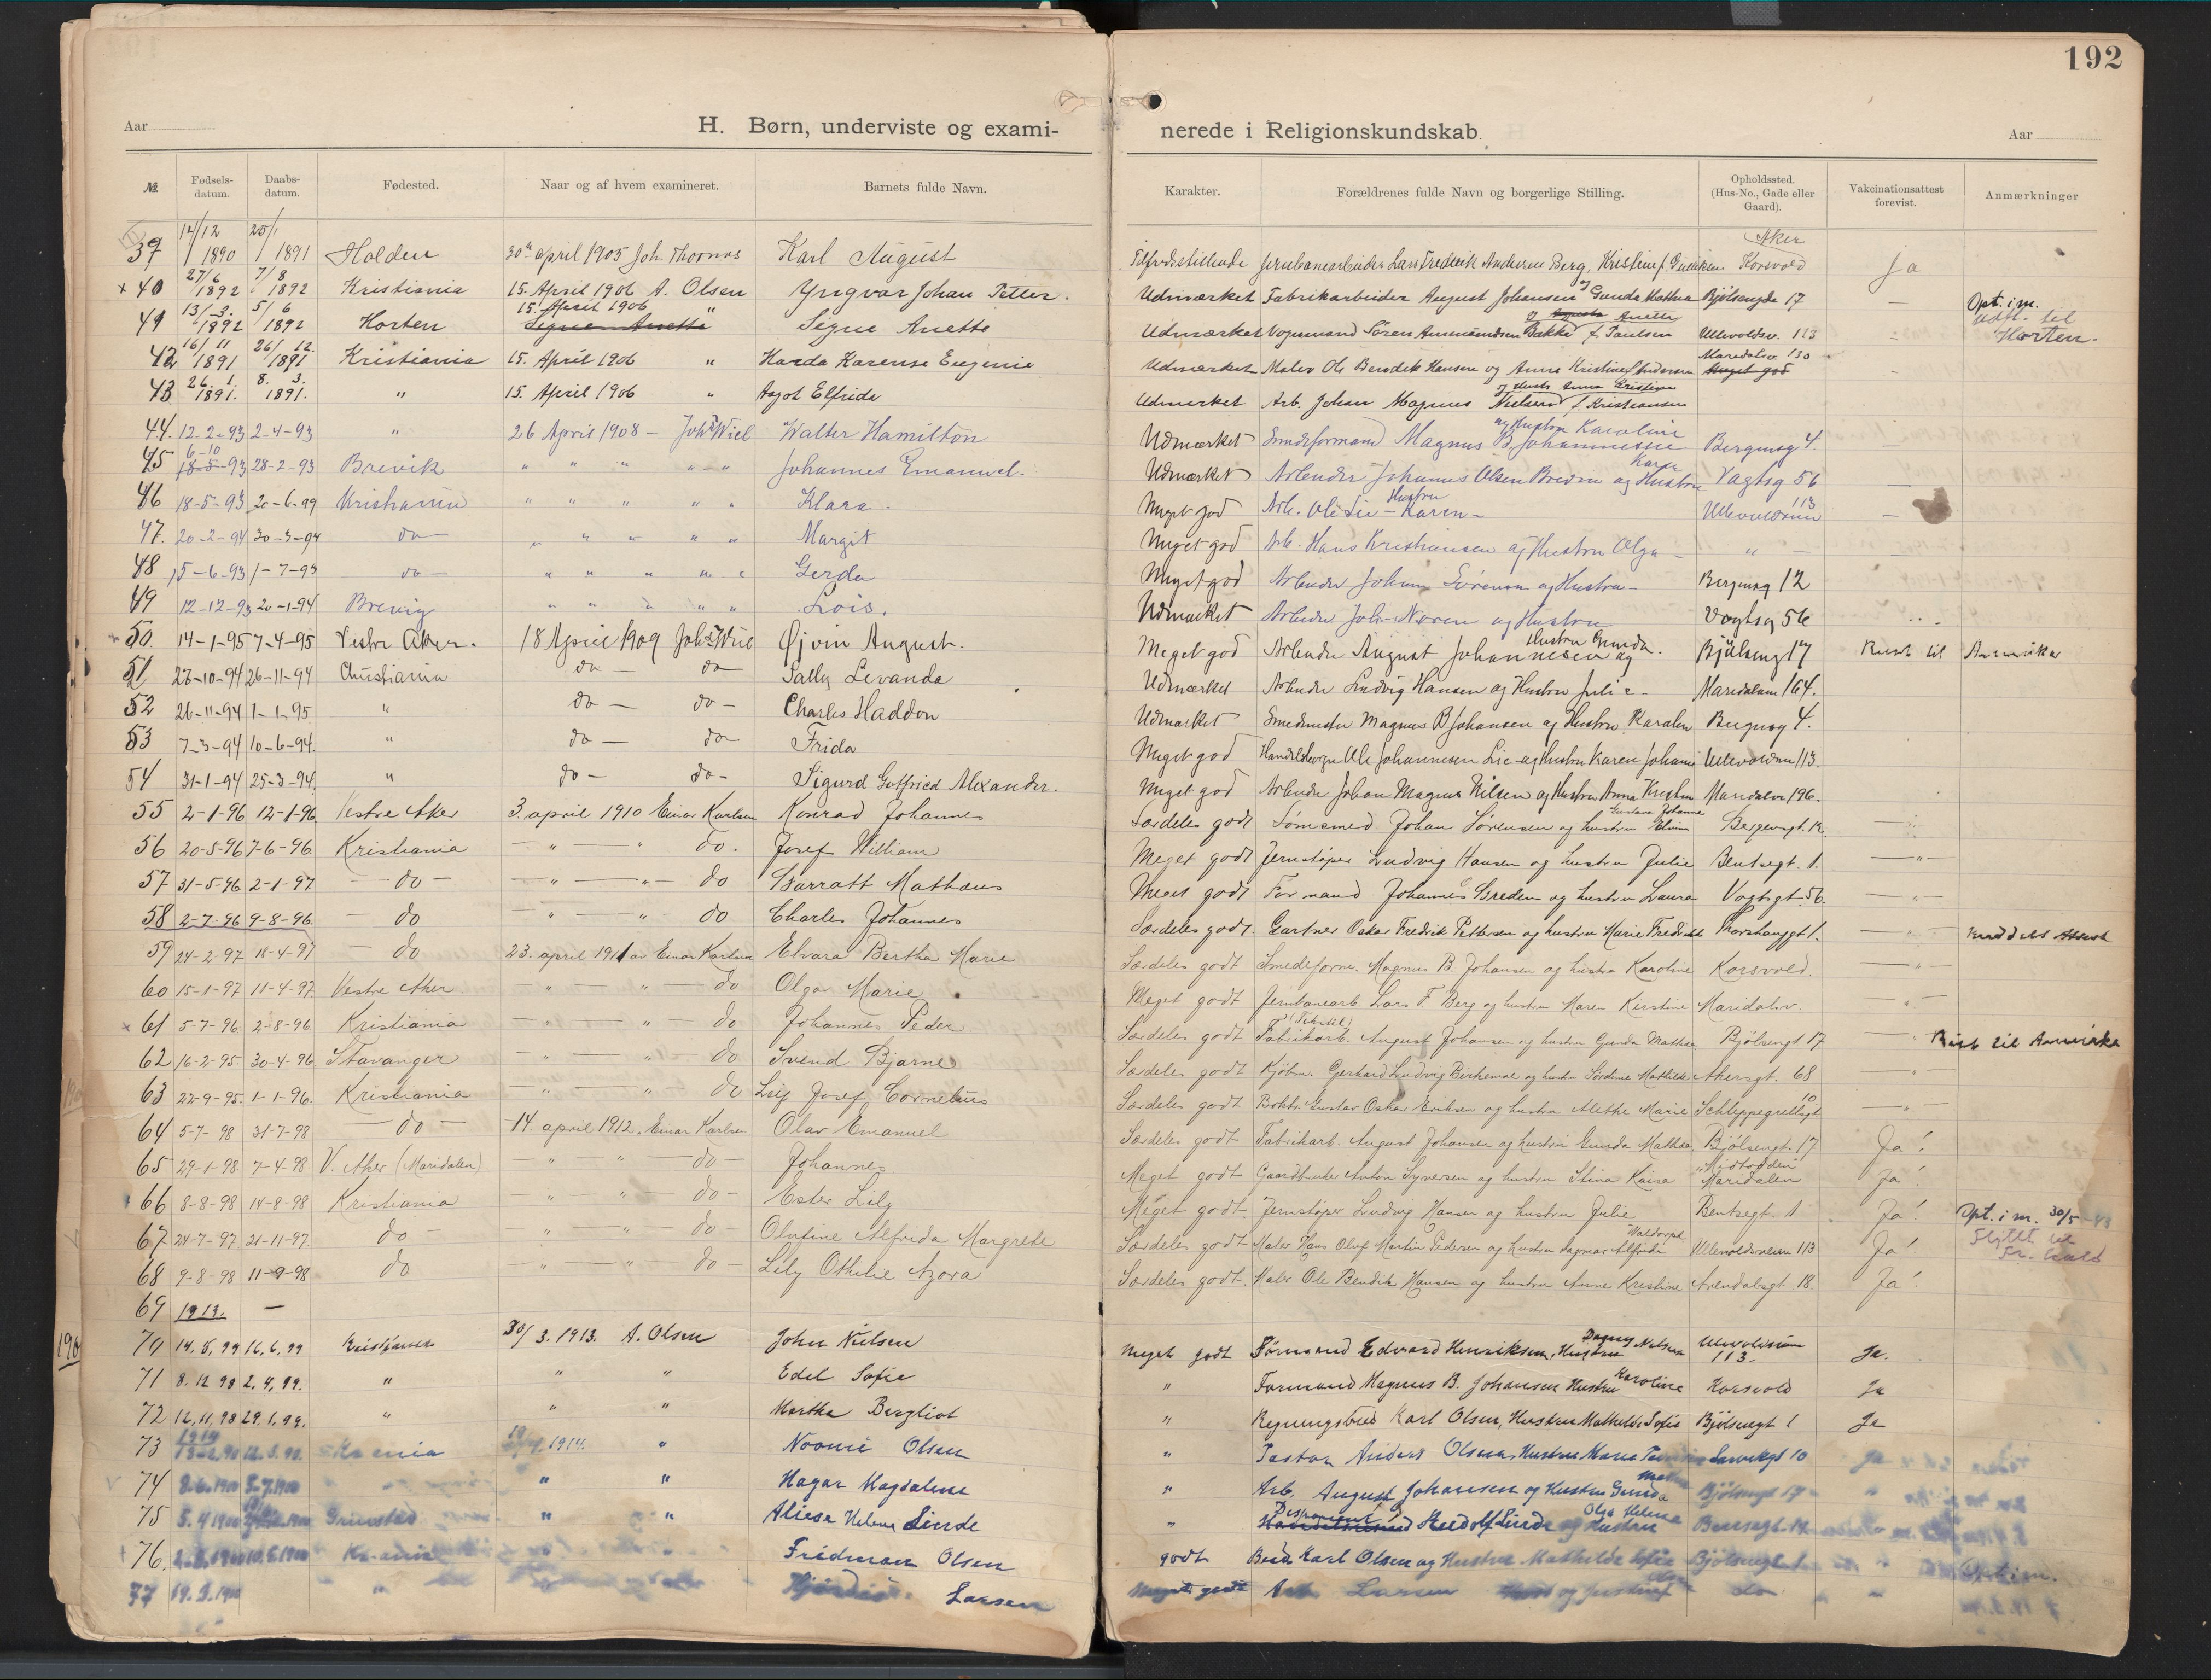 192
Aar
H. Børn, underviste og exami-
nerede i Religionskundskab.
Aar
№
Fødsels-datum.
Daabs-datum.
Fødested.
Naar og af hvem examineret.
Barnets fulde Navn.
Karakter.
Forældrenes fulde Navn og borgerlige Stilling.
Opholdssted. (Hus-No., Gade eller Gaard).
Vakcinationsattest forevist.
Anmærkninger
14/12 1890 25/1 1891 Halden 30te april 1905 Joh. Thornes Karl August Tilfredsstillende Jernbanearbeider Lars Fredrik Andersen Berg, Kristine f. Aker Korsvold Ja
× 40 27/6 1892 7/8 1892 Kristiania 15. April 1906 A. Olsen Yngvar Johan Petter. Udmærket Fabrikarbeider August Johansen og Gunda Mathea Bjølsengde 17 — Opt. i m.
41 13/3 1892 5/6 1892 Horten 15. April 1906 " Segne Anette Udmærket Vognmand Søren Ammundsen Bakke og Anette f. Paulsen Ullevoldsv. 113 Udfl. til Horten.
42 16/11 1891 26/12 1891 Kristiania 15. April 1906 " Harda Karense Eugenie Udmærket Maler Ole Bendik Hansen og Anna Kristine Andersen Maredalsv. 130 —
43 26. 1. 1891. 8. 3. 1891. " 15. April 1906 " Asgot Elfride Udmerket Arb. Johan Magnus Nielsen og Hustr. Anna Kristine f. Kristiansen
44. 12-2-93 2-4-93 " 26 April 1908 — Johs Wiel Walter Hamilton Udmærket Smedeformand Magnus B. Johannesse og Hustru Karoline Bergensg 4. —
45 6-10 18-5-93 28-2-93 Brevik " " " " " Johannes Emanuel. Udmærket Arbeider Johannes Olsen Breden og Hustru Karen Vagtsg 56
46 18-5-93 20-6-99 Kristiania " " " " " Klara. Meget god Arb. Ole Lie — Hustru Karen — Ullevoldsvei 113 —
47. 20-2-94 30-3-94 do — " " " " " Margit Meget god Arb. Hans Kristiansen og Hustru Olga — " — —
48 15-6-93 1-7-93 do — " " " " " Gerda Meget god Arbeider Johan Sørensen og Hustru — Bergensg 12
49 12-12-93 20-1-94 Brevig " " " " " Lois. Udmærket Arbeider Joh. Noren og Hustru Vogtsg 56
50. 14-1-95 7-4-95 Vestre Aker. 18 April 1909 Johs Wiel Øjvin August. Meget god Arbeider August Johannesen og Hustru Gunda. Bjølseng 17 Reist til Amerika
51 27-10-94 26-11-94 Christiania do — do — Sally Levanda Udmærket Arbeider Ludvig Hansen og Hustru Julie — Maridalsvn 164.
52 26-11-94 1-1-95 " do — do — Charles Haddon Udmærket Smedmester Magnus B Johansen og Hustru Karolen Bergensg 4.
53 7-3-94 10-6-94. " do — do — Frida Meget god Handelsborger Ole Johannesen Lie og Hustru Karen Johanne Ullevoldsvn 113.
54 31-1-94 25-3-94. " do — do — Sigurd Gotfried Alexander. Meget god Arbeider Johan Magnus Nilsen og Hustru Anna Kristin Maridalsv 196.
55 2-1-96 12-1-96 Vestre Aker 3. april 1910 Einar Karlsen Konrad Johannes Særdeles godt Sømsmed Johan Sørensen og hustru Gustava Johanne Elvine Bergensgt. 12. — " —
56 20-5-96 7-6-96 Kristiania — " — " do. Josef William Meget godt Jernstøper Ludvig Hansen og hustru Julie Bentsegt. 1. — " —
57 31-5-96 2-1-97 — do — — " — " — do Barratt Mathæus Meget godt Formand Johannes Breden og hustru Laura Vogtsgt. 56. — " —
58 2-7-96 9-8-96. — do — " — " — do Charles Johannes Særdeles godt. Gartner Oskar Fredrik Pettersen og hustru Marie Fredrikke Thorshauggt 1. — " — meddelt Attest
59 24-2-97 18-4-97 — do 23. april 1911 av Einar Karlsen Elvara Bertha Marie Særdeles godt Smedeform. Magnus B. Johansen og hustru Karoline Korsvold. — " —
60 15-1-97 11-4-97 Vestre Aker. — " — " — do Olga Marie Meget godt Jernbanearb. Lars F. Berg og hustru Maren Kirstine Maridalsv. — " —
× 61 5-7-96 2-8-96 Kristiania — " — " — do Johannes Peder Særdeles godt (Tekstil) Fabrikarb. August Johansen og hustru Gunda Mathea Bjølsengt 17 — " Reist til Amerika
62 16-2-95 30-4-96 Stavanger — " — " — do Svend Bjarne Særdeles godt Kjøbm. Gerhard Ludvig Berhemoe og hustru Sørdine Mathilde Akersgt. 68 — " —
63 22-9-95. 1-1-96. Kristiania — " — " — do Leif Josef Cornelius Særdeles godt Bokbr. Gustav Oskar Eriksen og hustru Alethe Marie Schleppegrellsgt 10 — " —
64 5-7-98 31-7-98 — do — 14 april 1912. Einar Karlsen Olav Emanuel Særdeles godt Fabrikarb. August Johansen og hustru Gunda Mathea Bjølsengt. 17 Ja!
65 29-1-98 7-4-98 V. Aker (Maridalen) — " — " — do — Johannes Meget godt Gaardbruker Anton Syversen og hustru Stina Kaisa "Midtodden" Maridalen Ja!
66 8-8-98 14-8-98 Kristiania — " — " — do — Ester Lily Meget godt. Jernstøper Ludvig Hansen og hustru Julie Bentsegt. 1 Ja! Opt. i m. 30/5-43
67 24-7-97 21-11-97 do — — " — " — do — Olufine Alfrida Margrete Særdeles godt Maler Hans Oluf Martin Pedersen og hustru Dagmar Alfride Ullevoldsveien 113 Ja! Flyttet til
68 9-8-98 11-9-98 do — " — " — do — Lily Othilie Azora Særdeles godt. Maler Ole Bendik Hansen og hustru Anne Kristine Arendalsgt. 18. Ja!
69 1913. —
190
70 14.5.99 16.6.99 Kristiania 30/3. 1913. A. Olsen John Nielsen Meget godt Formand Edvard Henriksen, Hustru Dagny Nilsen Ullevoldsvein 113. Ja.
71 8.12 98 2.4.99. " " " Edel Sofie " Formand Magnus B. Johansen Hustru Karoline Korsvold Ja
72 12.11.98 29.1.99. " " " Martha Bergliot " Regningsbud Karl Olsen, Hustru Mathilde Sofie Bjølsengt 1 Ja
73 1914 1914. " Noomi Olsen " Pastor Anders Olsen, Hustru Marie 10 Ja
74 " " Hagar Magdalene " Arb. August Johansen og Hustru Gunda Bjølsengt 17
75 5.4 1900 Grimstad " " Aliese Helene Linde " Disponent Rudolf Linde og Hustru Olga Helene
76. Fridman Olsen godt Bud Karl Olsen og Hustru Mathilde Sofie Bjølsengt 1 Opt i m.
77 19.3.1900 " Hjørdis Larsen Meget godt Arb Larsen og hustru do "